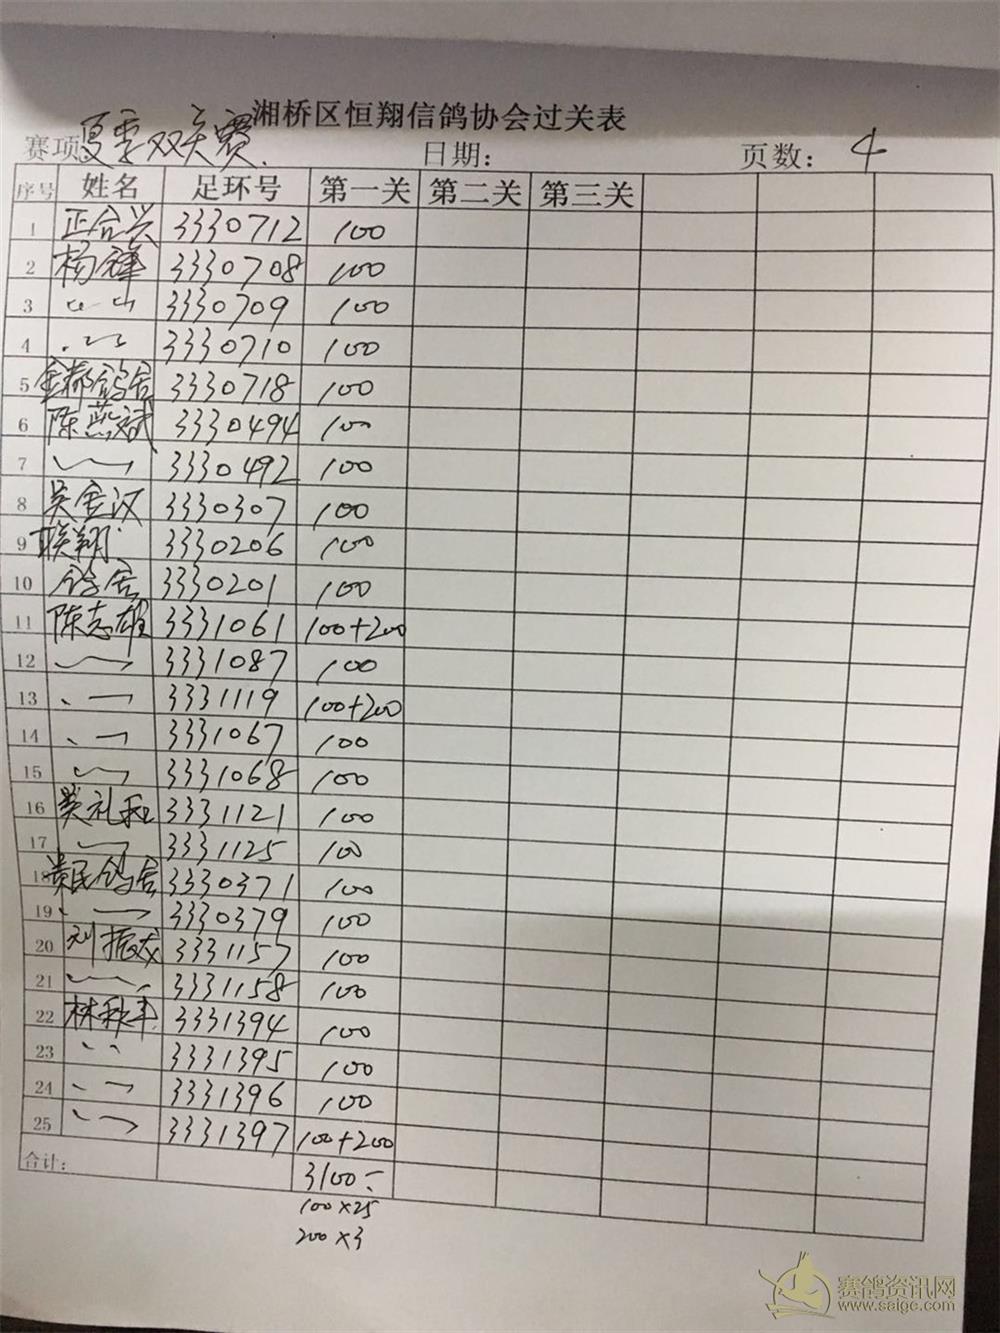 湘桥区恒翔信鸽协会过关表
赛项 夏季双关赛. 日期: 页数: 4
序号 姓名 足环号 第一关 第二关 第三关
1 正合兴 3330712 100
2 杨锋 3330708 100
3 3330709 100
4 3330710 100
5 金都鸽舍 3330718 100
6 陈燕斌 3330494 100
7 3330492 100
8 吴金汉 3330307 100
9 联翔 3330206 100
10 鸽舍 3330201 100
11 陈志雄 3331061 100+200
12 3331087 100
13 3331119 100+200
14 3331067 100
15 3331068 100
16 礼和 3331121 100
17 3331125 100
18 民鸽舍 3330371 100
19 3330379 100
20 刘振成 3331157 100
21 3331158 100
22 林秋丰 3331394 100
23 3331395 100
24 3331396 100
25 3331397 100+200
合计: 3100
100×25
200×3
赛鸽资讯网
www.saige.com